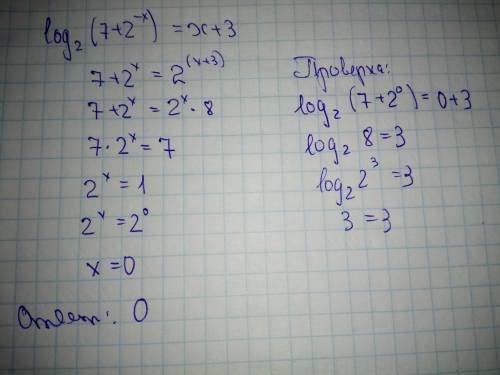 log₂(7+2⁻ˣ) = x+3
7+2ˣ = 2⁽ˣ⁺³⁾
7+2ˣ = 2ˣ·8
7·2ˣ = 7
2ˣ = 1
2ˣ = 2⁰
x = 0
Ответ: 0
Проверка:
log₂(7+2⁰) = 0+3
log₂ 8 = 3
log₂ 2³ = 3
3 = 3